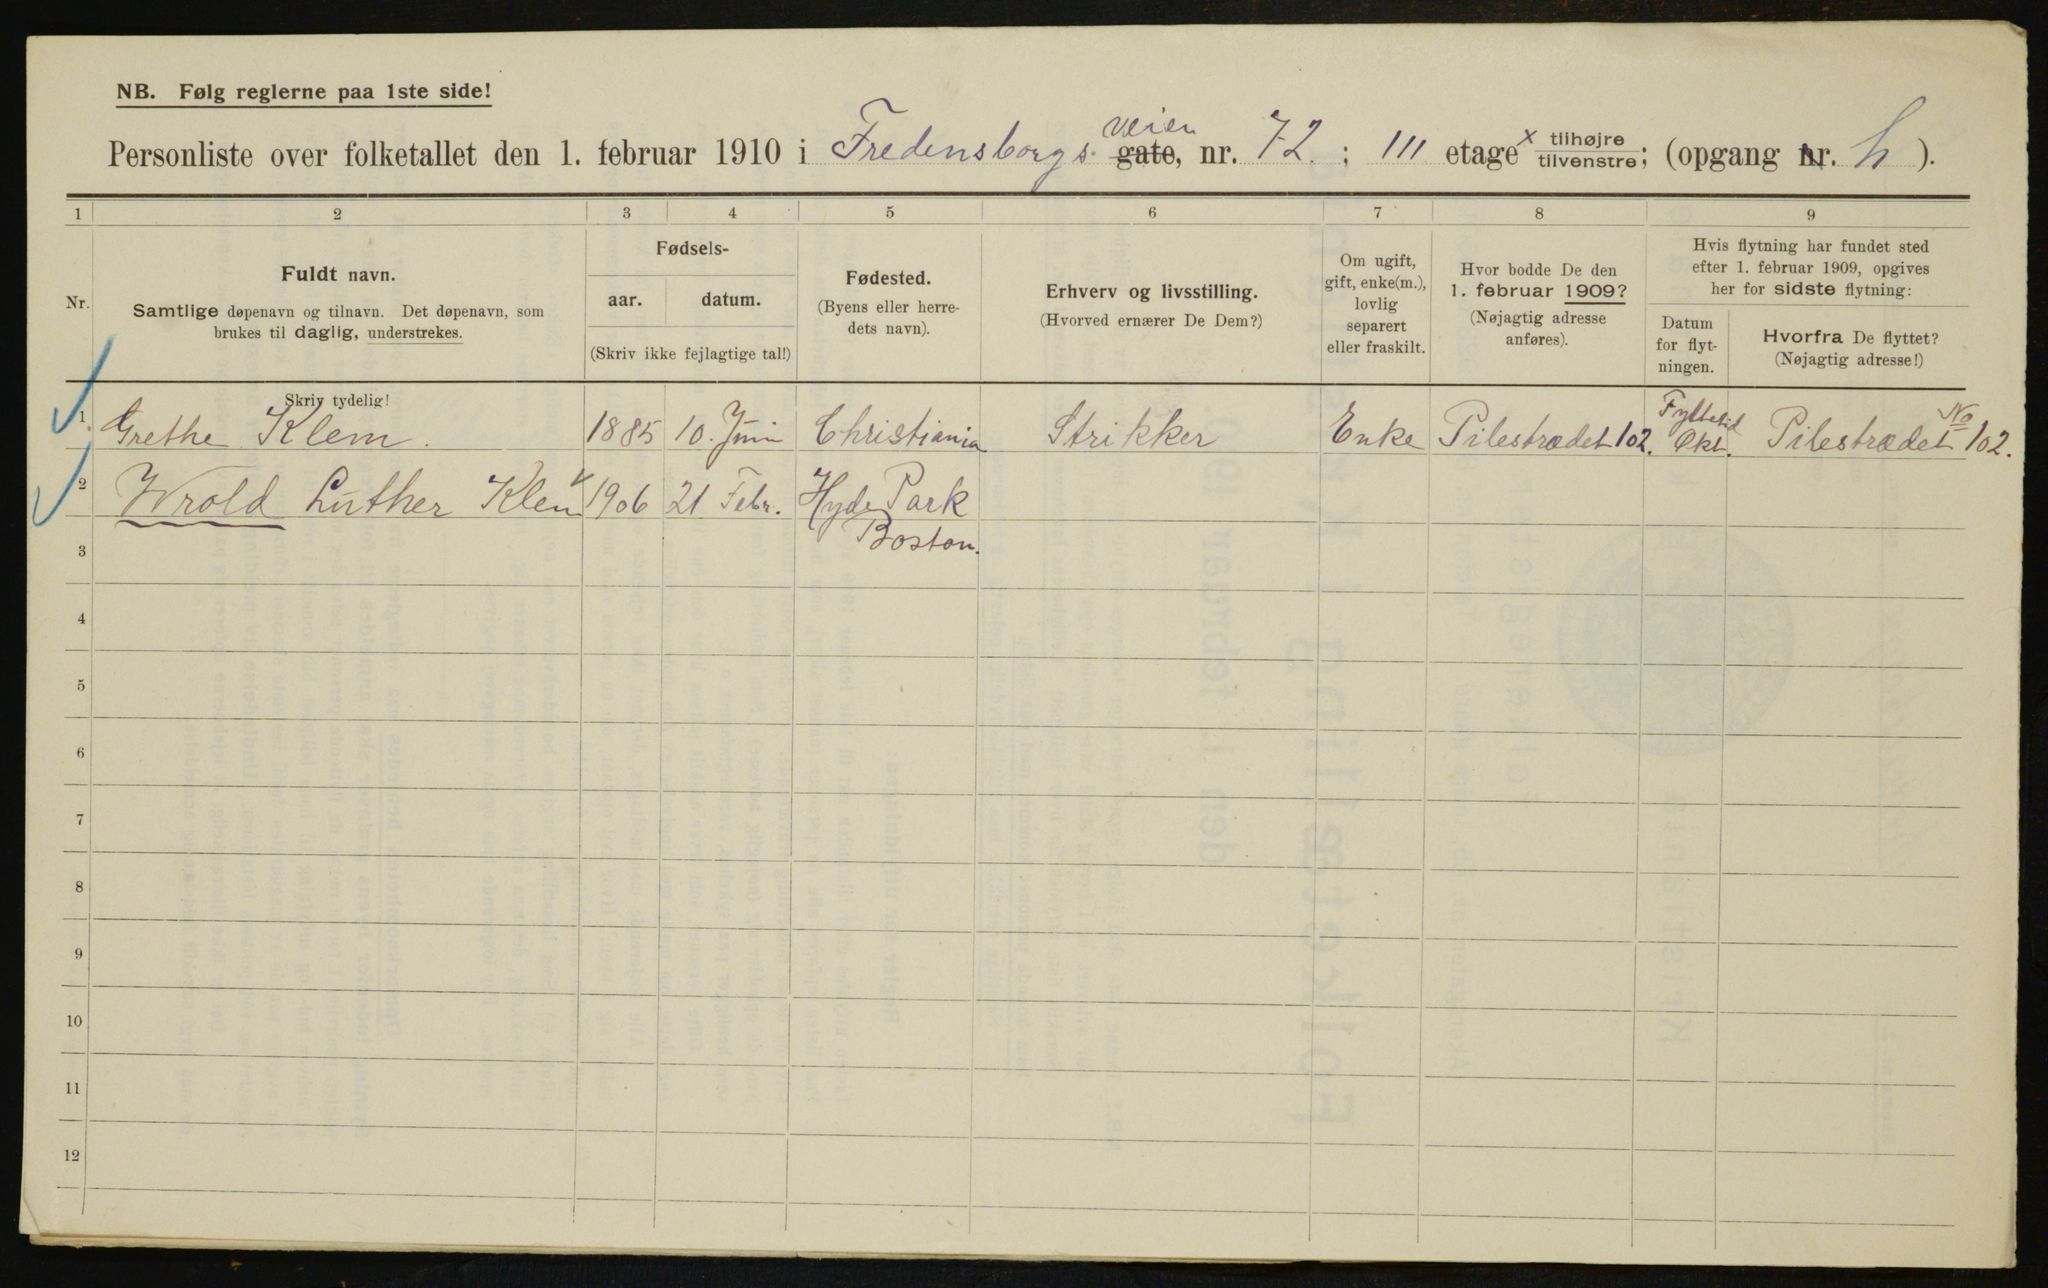 NB. Følg reglerne paa 1ste side!
Personliste over folketallet den 1. februar 1910 i Fredensborgs veien gate, nr. 72 ; III etage x tilhøjre tilvenstre; (opgang nr. h ).
1 2 3 4 5 6 7 8 9
Nr.
Fuldt navn.
Samtlige døpenavn og tilnavn. Det døpenavn, som
brukes til daglig, understrekes.
Skriv tydelig!
Fødsels-
aar. datum.
(Skriv ikke fejlagtige tal!)
Fødested.
(Byens eller herre-
dets navn).
Erhverv og livsstilling.
(Hvorved ernærer De Dem?)
Om ugift,
gift, enke(m.),
lovlig
separert
eller fraskilt.
Hvor bodde De den
1. februar 1909?
(Nøjagtig adresse
anføres).
Hvis flytning har fundet sted
efter 1. februar 1909, opgives
her for sidste flytning:
Datum
for flyt-
ningen.
Hvorfra De flyttet?
(Nøjagtig adresse!)
1. Grethe Klem. 1885 10. Juni Christiania Strikker Enke Pilestrædet 102. Fyltetid Okt. Pilestrædet No 102.
2 Wrold Luther Klem 1906 21 Febr. Hyde Park
Boston.
3
4
5
6
7
8
9
10
11
12